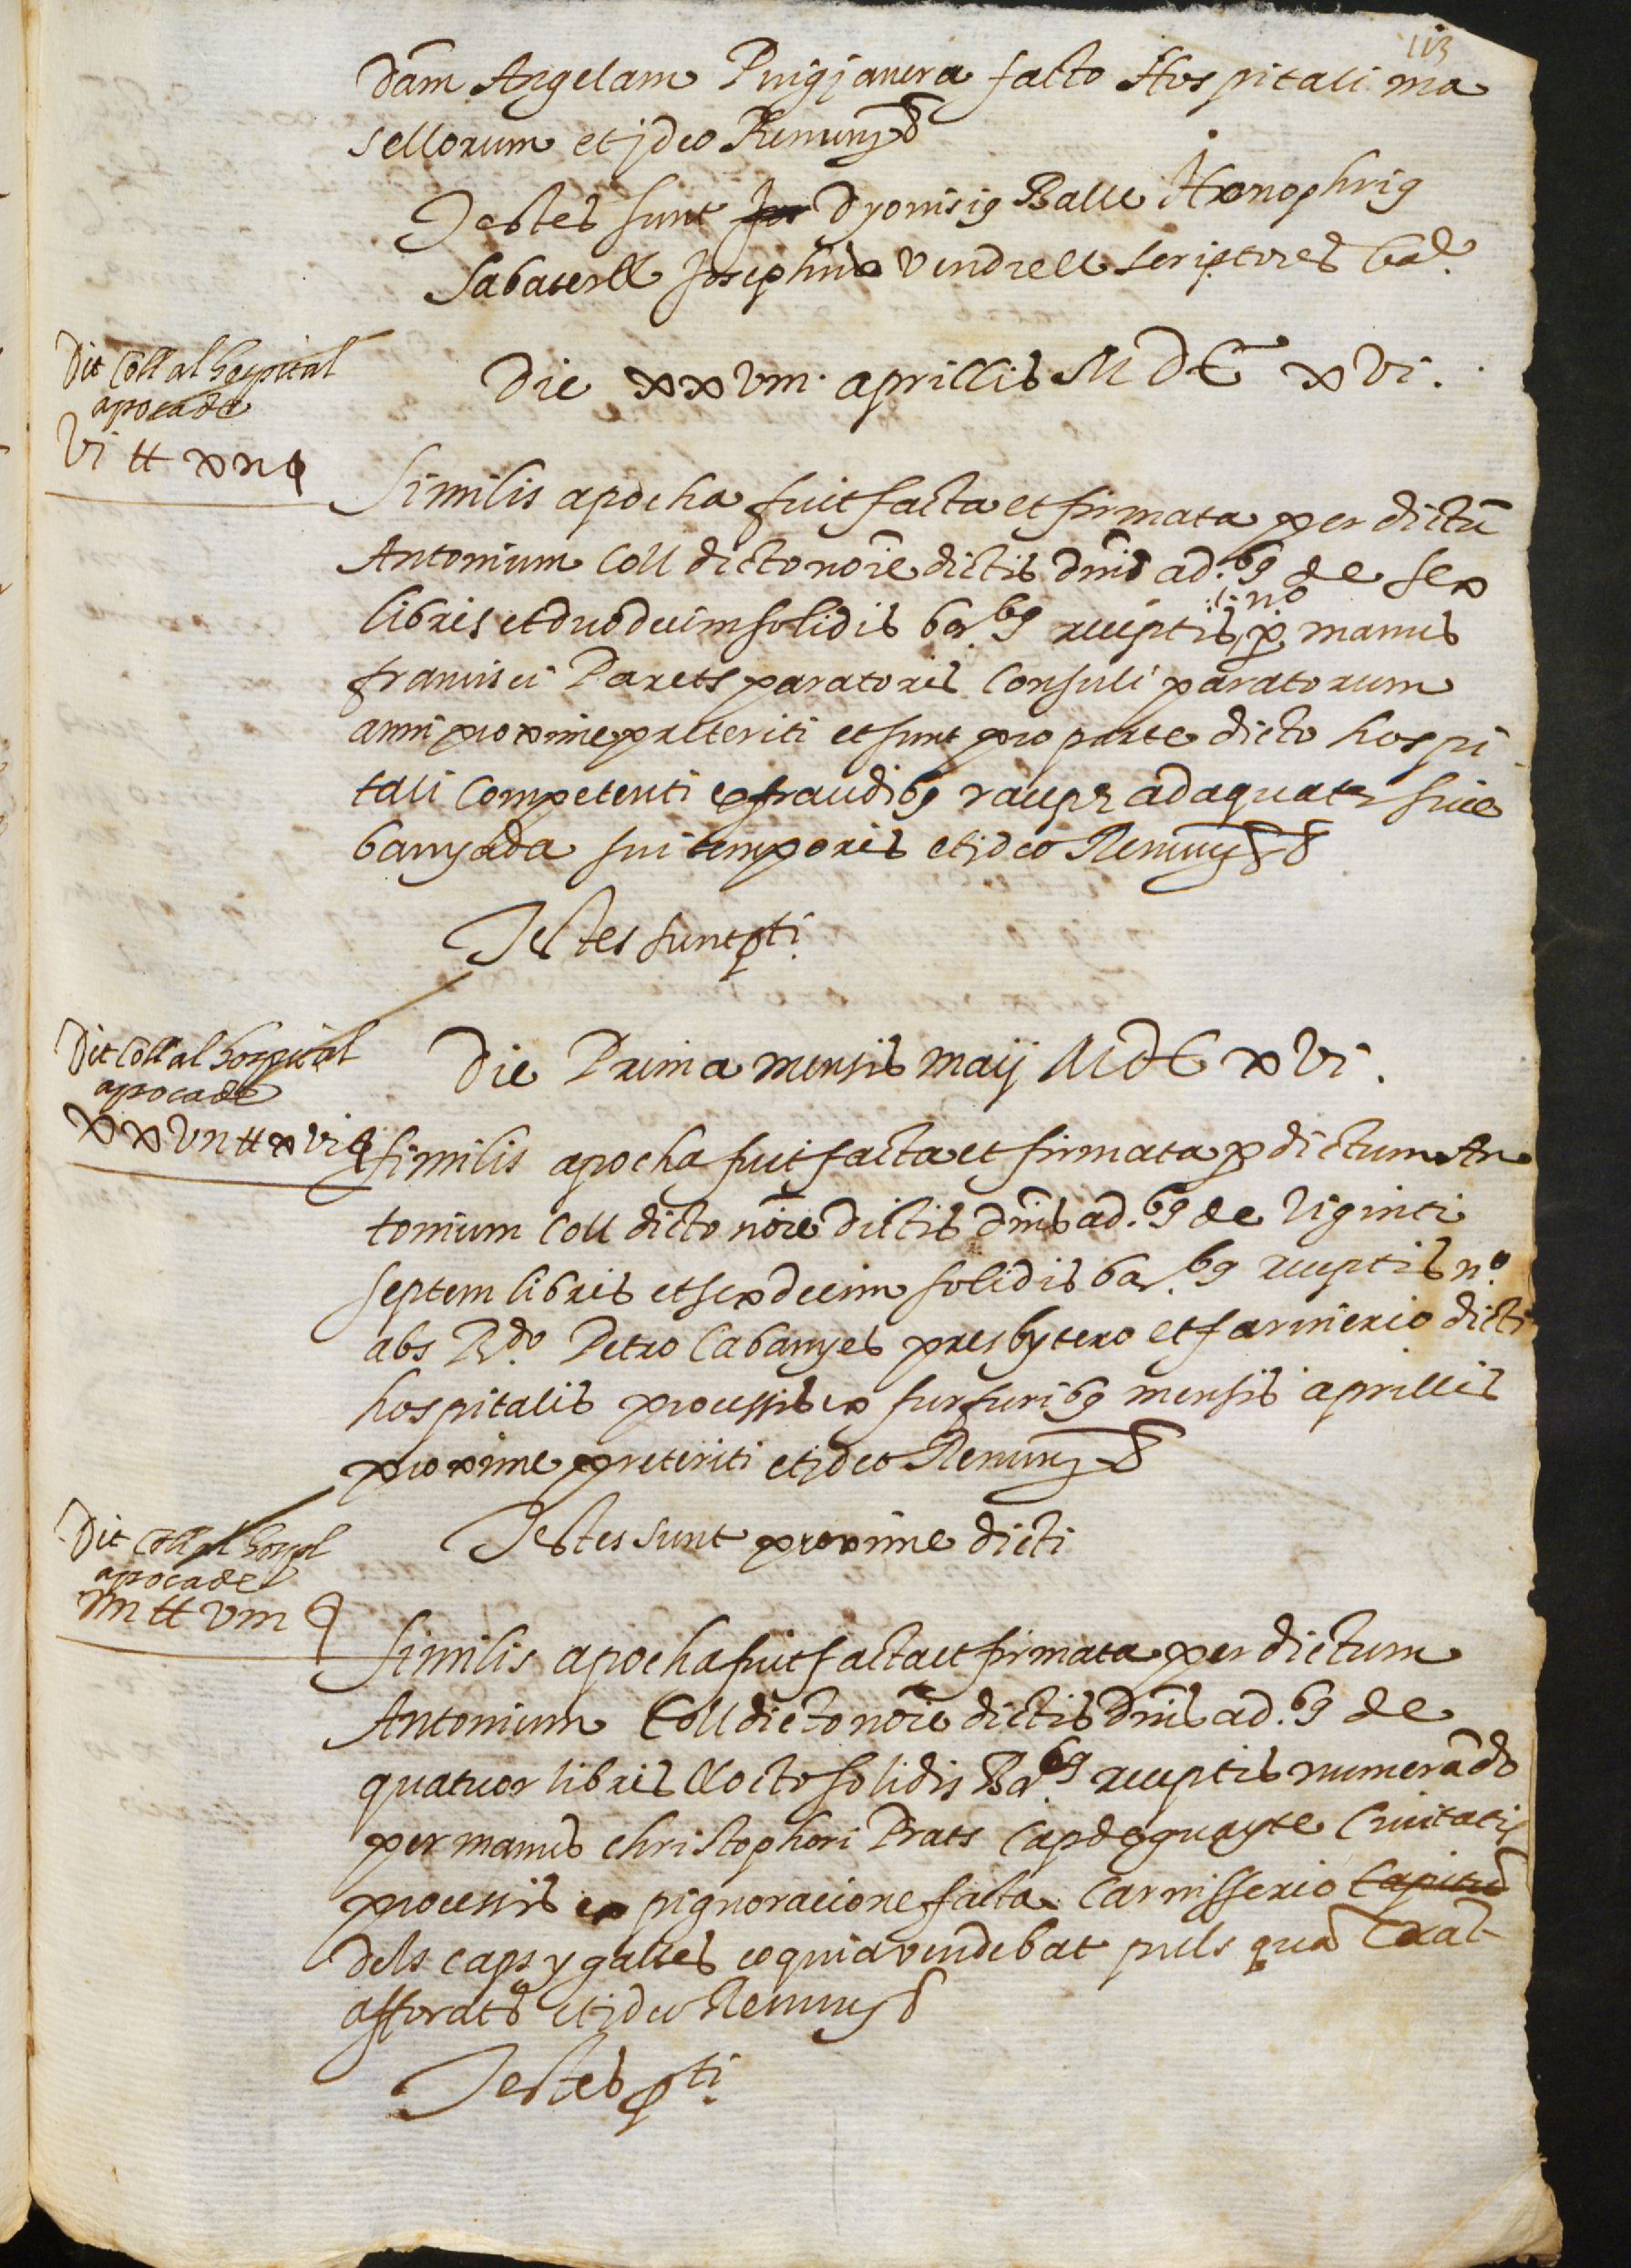 113
dam Angelam Puigjanera facto Hospitali ma
sellorum et jdeo Renung &
Testes sunt Dyonisi9 Balle Honophri9
Sabater & Josephus Vendrell scriptores
Die xxviii aprillis MDC xvi.
Dit Coll al hospital
apoca de
vi tt xii ẜ
Similis apocha fuit facta et firmata per dictũ
Antonium Coll dicto noĩe dictis dñis ad.b9 de sex
libris et duodecim solidis bar.b9 receptis p̱ manus
no
francisci Parets paratoris Consuli paratorum
anni proxime preteriti et sunt pro parte dicto hospi
tali Competenti ex fraudib9 adaquat sive
banyada sui temporis et jdeo Renung &
Testes sunt p̱ti.
Dit Coll al hospital
apoca de
xxvii tt xvi ẜ
Die Prima mensis maij MDC xvi.
similis apocha fuit facta et firmata p̱ dictum An
tonium Coll dicto noĩe dictis dñis ad.b9 de viginti
septem libris et sexdecim solidis bar.b9 receptis n.o
abs R.do Petro Cabanyes presbytero et farinerio dicti
hospitalis processis ex furfurib9 mensis aprillis
proxime preteriti et jdeo Renung &
Testes sunt proxime dicti
Dit Coll al hospl
apoca de
iiii tt viii ẜ
Similis apocha fuit facta et firmata per dictum
Antonium Coll dicto noĩe dictis dñis ad.b9 de
quatuor libris & octo solidis Bar.b9 receptis numerãdo
per manus christophori Prats Cap de guayte Civitatis
processis ex pignoracione facta Carnisserio
dels caps y galtes eo quia vendebat quã
afforat et jdeo Renung &
Testes p̱ti.